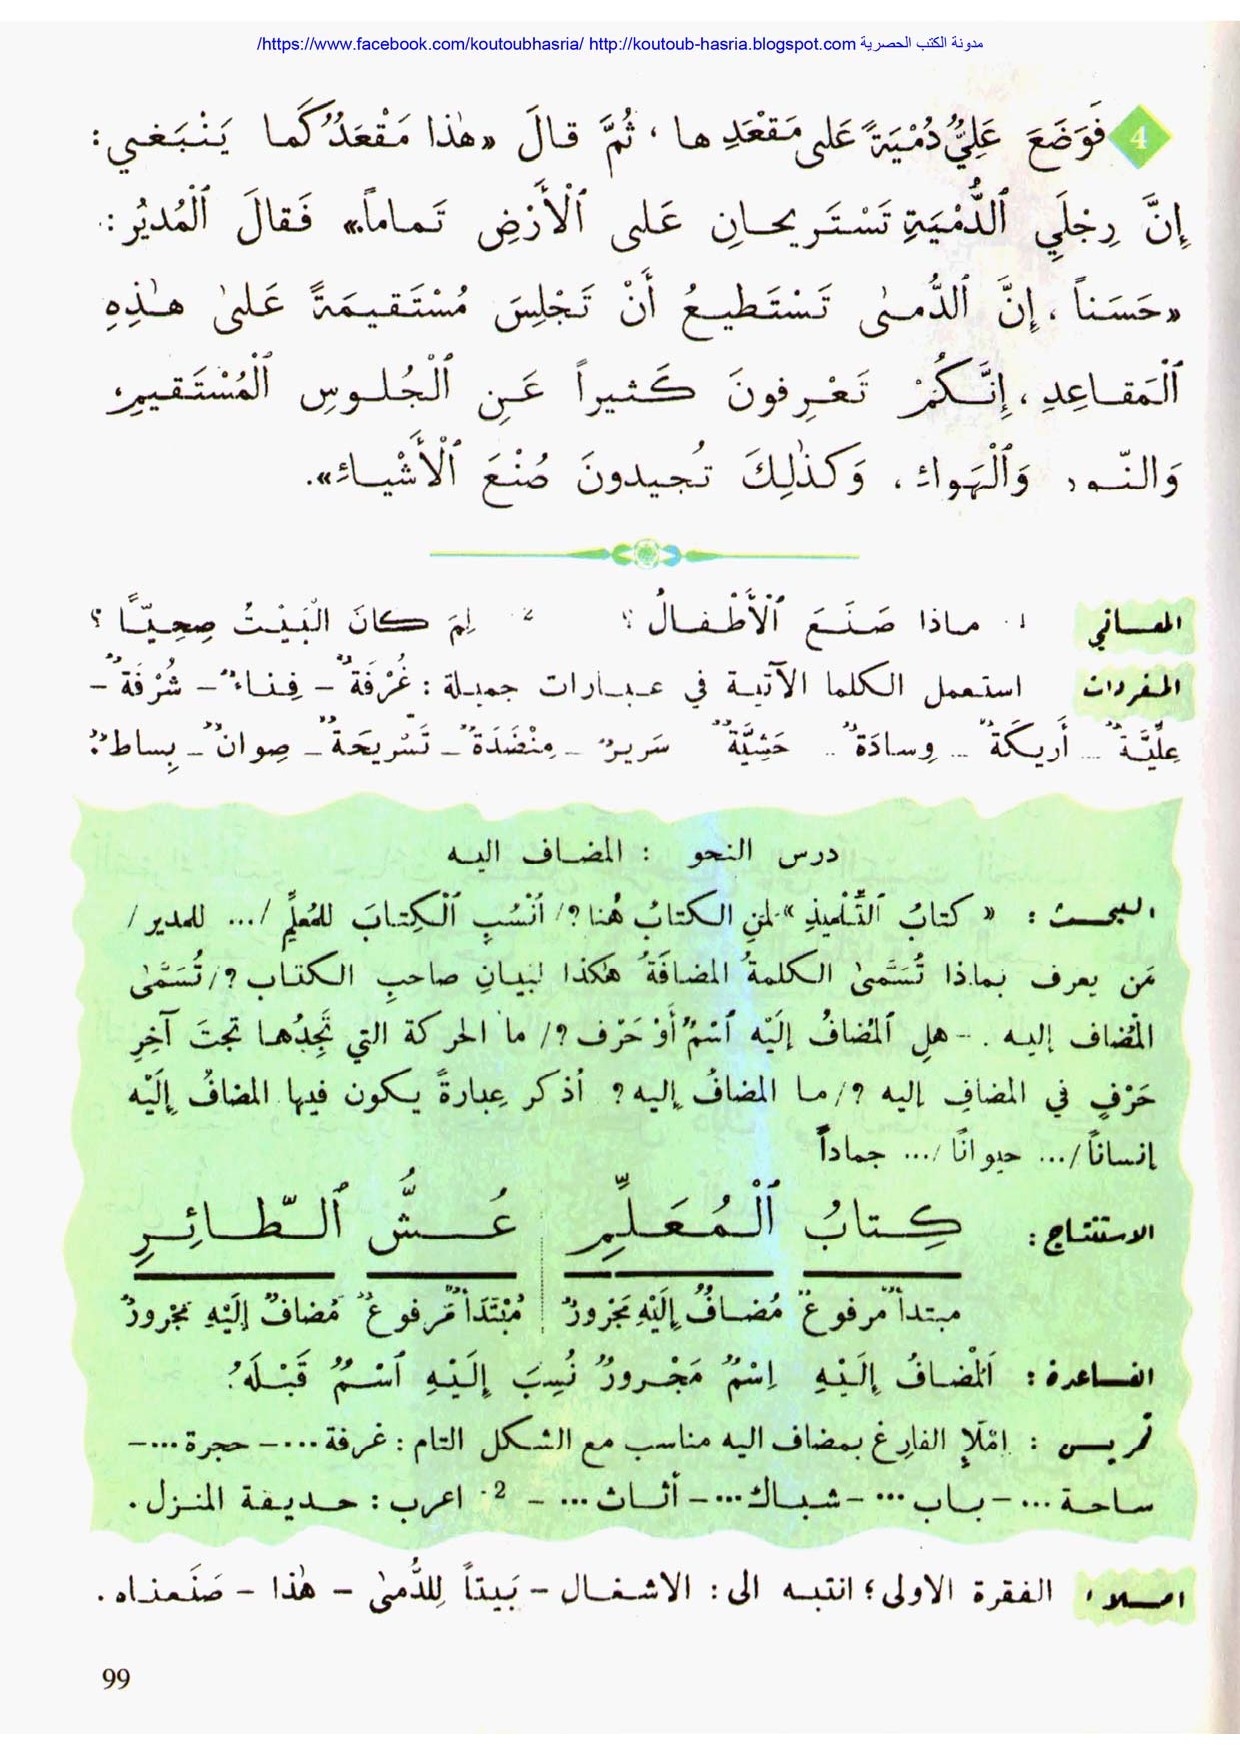 https://www.facebook.com/koutoubhasria/ http://koutoub-hasria.blogspot.com مدونة الكتب الحصرية/
4 فَوَضَعَ عَلِيٌّ دُمْيَةً عَلى مَقْعَدِها ، ثُمَّ قالَ «هٰذا مَقْعَدٌ كَما يَنْبَغي :
إِنَّ رِجْلَيِ ٱلدُّمْيَةِ تَسْتَريحانِ عَلى ٱلْأَرْضِ تَماماً» فَقالَ ٱلْمُديُر :
«حَسَناً ، إِنَّ ٱلدُّمىٰ تَسْتَطيعُ أَنْ تَجْلِسَ مُسْتَقيمَةً عَلىٰ هٰذِهِ
ٱلْمَقاعِدِ ، إِنَّكُمْ تَعْرِفونَ كَثيراً عَنِ ٱلْجُلوسِ ٱلْمُسْتَقيمِ
وَالنّورِ وَٱلْهَواءِ ، وَكَذٰلِكَ تُجيدونَ صُنْعَ ٱلْأَشْياءِ».
المعاني 1. ماذا صَنَعَ ٱلْأَطْفالُ ؟ 2. لِمَ كانَ الْبَيْتُ صِحِيّاً ؟
المفردات استعمل الكلما الآتية في عبارات جميلة : غُرْفَةٌ - فِناءٌ - شُرْفَةٌ -
عِلِّيَّةٌ - أَريكَةٌ - وِسادَةٌ - حَشِيَّةٌ سَريرٌ - مِنْضَدَةٌ - تَسْريحَةٌ - صِوانٌ - بِساطٌ.
درس النحو : المضاف اليه
البحث : « كتابُ التِّلْميذِ » لمَنِ الكتابُ هُنا ؟/ أُنْسُبِ ٱلْكِتابَ للمُعلِّمِ /... للمدير /
مَن يعرف بماذا تُسَمَّىٰ الكلمةُ المضافَةُ هٰكذا لبَيانِ صاحبِ الكتاب ؟/ تُسَمَّىٰ
المُضاف إليه . - هلِ ٱلمُضافُ إلَيْه ٱسْمٌ أوْ حَرْف ؟/ ما الحركة التي تَجِدُها تحتَ آخِرِ
حَرْفٍ في المضافِ إليه ؟/ ما المضافُ إليه ؟ أذكر عِبارةً يكون فيها المضافُ إلَيْه
إنساناً /... حيواناً /... جماداً
الاستنتاج : كِتابُ ٱلْمُعَلِّمِ عُشُّ ٱلطّائِرِ
مبتدأٌ مرفوعٌ مُضافٌ إِلَيْهِ مَجْرورٌ مُبْتَدَأٌ مَرفوعٌ مُضافٌ إِلَيْهِ مَجْرورٌ
القاعدة : اَلْمُضافُ إِلَيْهِ اِسْمٌ مَجْرورٌ نُسِبَ إِلَيْهِ ٱسْمٌ قَبْلَهُ.
تمرين : اِمْلَإِ الفارِغ بمضاف اليه مناسب مع الشكل التام : غرفة ... - حجرة ... -
ساحة ... - باب ... - شباك ... - أثاث ... - 2. اعرب : حديقة المنزل .
املاء الفقرة الاولى ؛ انتبه الى : الاشغال - بَيتاً لِلدُّمىٰ - هٰذا - صَنَعناه .
99